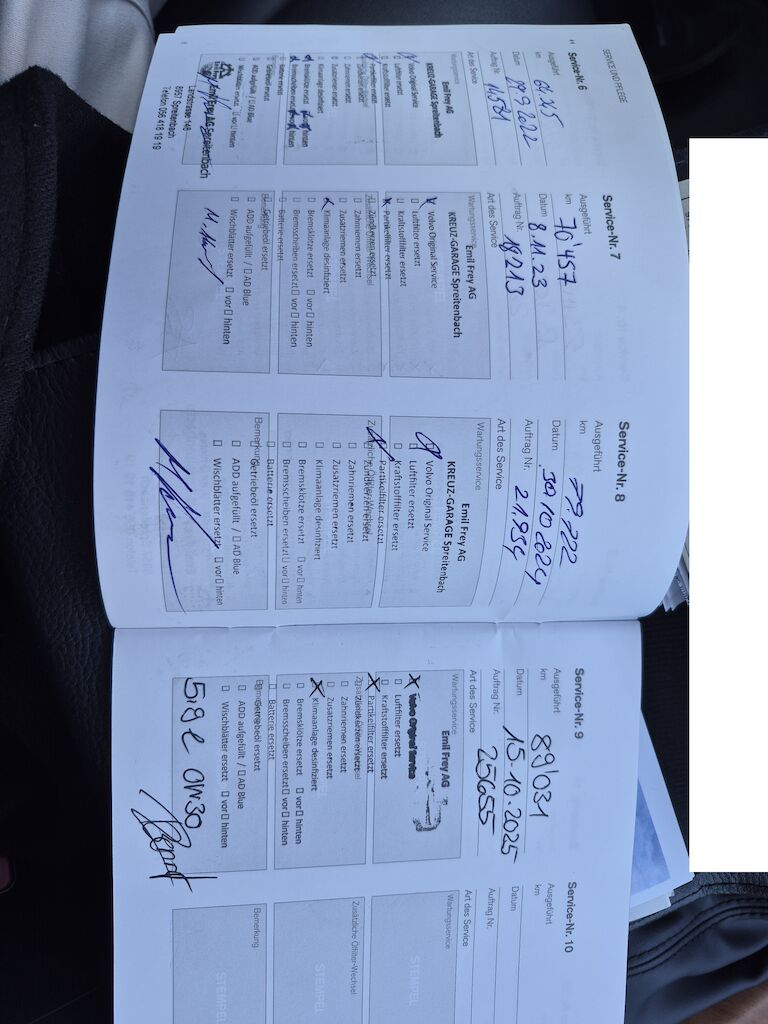 SERVICE UND PFLEGE
Service-Nr. 6
Ausgeführt
km
Datum 29.9.2022
Auftrag Nr. 14571
Art des Service
Wartungsservice
Emil Frey AG
KREUZ-GARAGE Spreitenbach
Volvo Original Service
Luftfilter ersetzt
Kraftstofffilter ersetzt
Partikelfilter ersetzt
Zündkerzen ersetzt
Zahnriemen ersetzt
Zusatzriemen ersetzt
Klimaanlage desinfiziert
Bremsklötze ersetzt
Bremsscheiben ersetzt
Batterie ersetzt
Getriebeöl ersetzt
ADD aufgefüllt / AD Blue
Wischblätter ersetzt vor hinten
Emil Frey AG Spreitenbach
Landstrasse 146
8957 Spreitenbach
Telefon 056 418 19 19
Service-Nr. 7
Ausgeführt
km 70'457
Datum 8.11.23
Auftrag Nr. 18213
Art des Service
Wartungsservice
Emil Frey AG
KREUZ-GARAGE Spreitenbach
Volvo Original Service
Luftfilter ersetzt
Kraftstofffilter ersetzt
Partikelfilter ersetzt
Zündkerzen ersetzt
Zahnriemen ersetzt
Zusatzriemen ersetzt
Klimaanlage desinfiziert
Bremsklötze ersetzt vor hinten
Bremsscheiben ersetzt vor hinten
Batterie ersetzt
Getriebeöl ersetzt
ADD aufgefüllt / AD Blue
Wischblätter ersetzt vor hinten
Service-Nr. 8
Ausgeführt
km 79.722
Datum 30.10.2024
Auftrag Nr. 21.934
Art des Service
Wartungsservice
Emil Frey AG
KREUZ-GARAGE Spreitenbach
Volvo Original Service
Luftfilter ersetzt
Kraftstofffilter ersetzt
Partikelfilter ersetzt
Zusätzliche Ölfilter-Wechsel
Zündkerzen ersetzt
Zahnriemen ersetzt
Zusatzriemen ersetzt
Klimaanlage desinfiziert
Bremsklötze ersetzt vor hinten
Bremsscheiben ersetzt vor hinten
Batterie ersetzt
Bemerkung
Getriebeöl ersetzt
ADD aufgefüllt / AD Blue
Wischblätter ersetzt vor hinten
Service-Nr. 9
Ausgeführt
km 89'031
Datum 15.10.2025
Auftrag Nr. 25655
Art des Service
Wartungsservice
Emil Frey AG
Volvo Original Service
Luftfilter ersetzt
Kraftstofffilter ersetzt
Partikelfilter ersetzt
Zündkerzen ersetzt
Zahnriemen ersetzt
Zusatzriemen ersetzt
Klimaanlage desinfiziert
Bremsklötze ersetzt vor hinten
Bremsscheiben ersetzt vor hinten
Batterie ersetzt
Getriebeöl ersetzt
ADD aufgefüllt / AD Blue
Wischblätter ersetzt vor hinten
5,9 l 0W30
Service-Nr. 10
Ausgeführt
km
Datum
Auftrag Nr.
Art des Service
Wartungsservice
STEMPEL
Zusätzliche Ölfilter-Wechsel
STEMPEL
Bemerkung
STEMPEL